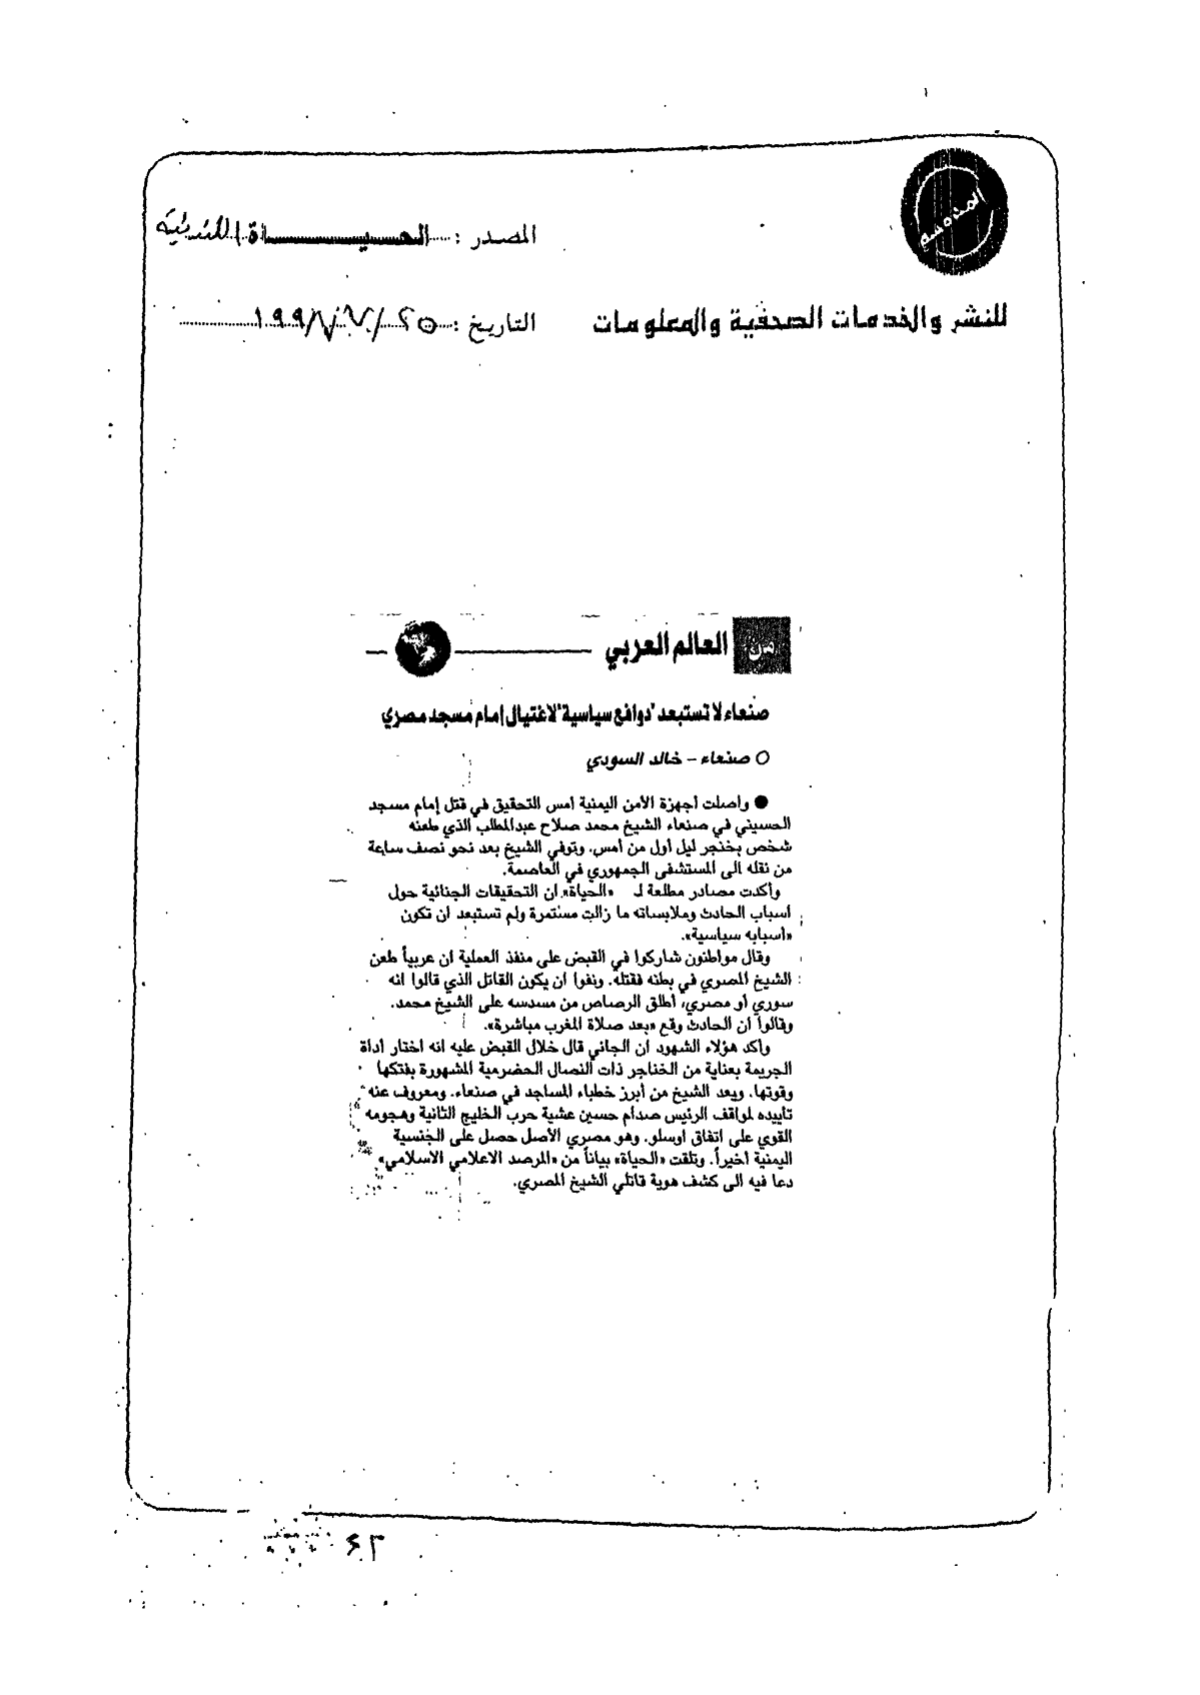 المصدر : الحيـــــاة اللندنية
للنشر والخدمات الصحفية والمعلومات
التاريخ :
من العالم العربي
صنعاء لا تستبعد "دوافع سياسية" لاغتيال إمام مسجد مصري
○ صنعاء – خالد السودي
● واصلت أجهزة الأمن اليمنية أمس التحقيق في قتل إمام مسجد
الحسيني في صنعاء الشيخ محمد صلاح عبدالمطلب الذي طعنه
شخص بخنجر ليل أول من أمس. وتوفي الشيخ بعد نحو نصف ساعة
من نقله الى المستشفى الجمهوري في العاصمة.
وأكدت مصادر مطلعة لـ «الحياة» ان التحقيقات الجنائية حول
اسباب الحادث وملابساته ما زالت مستمرة ولم تستبعد ان تكون
«اسبابه سياسية».
وقال مواطنون شاركوا في القبض على منفذ العملية ان عربياً طعن
الشيخ المصري في بطنه فقتله. ونفوا ان يكون القاتل الذي قالوا انه
سوري أو مصري، أطلق الرصاص من مسدسه على الشيخ محمد.
وقالوا ان الحادث وقع «بعد صلاة المغرب مباشرة».
وأكد هؤلاء الشهود ان الجاني قال خلال القبض عليه انه اختار أداة
الجريمة بعناية من الخناجر ذات النصال الحضرمية المشهورة بفتكها
وقوتها. ويعد الشيخ من أبرز خطباء المساجد في صنعاء. ومعروف عنه
تأييده لمواقف الرئيس صدام حسين عشية حرب الخليج الثانية وهجومه
القوي على اتفاق اوسلو. وهو مصري الأصل حصل على الجنسية
اليمنية أخيراً. وتلقت «الحياة» بياناً من «المرصد الاعلامي الاسلامي»
دعا فيه الى كشف هوية قاتلي الشيخ المصري.